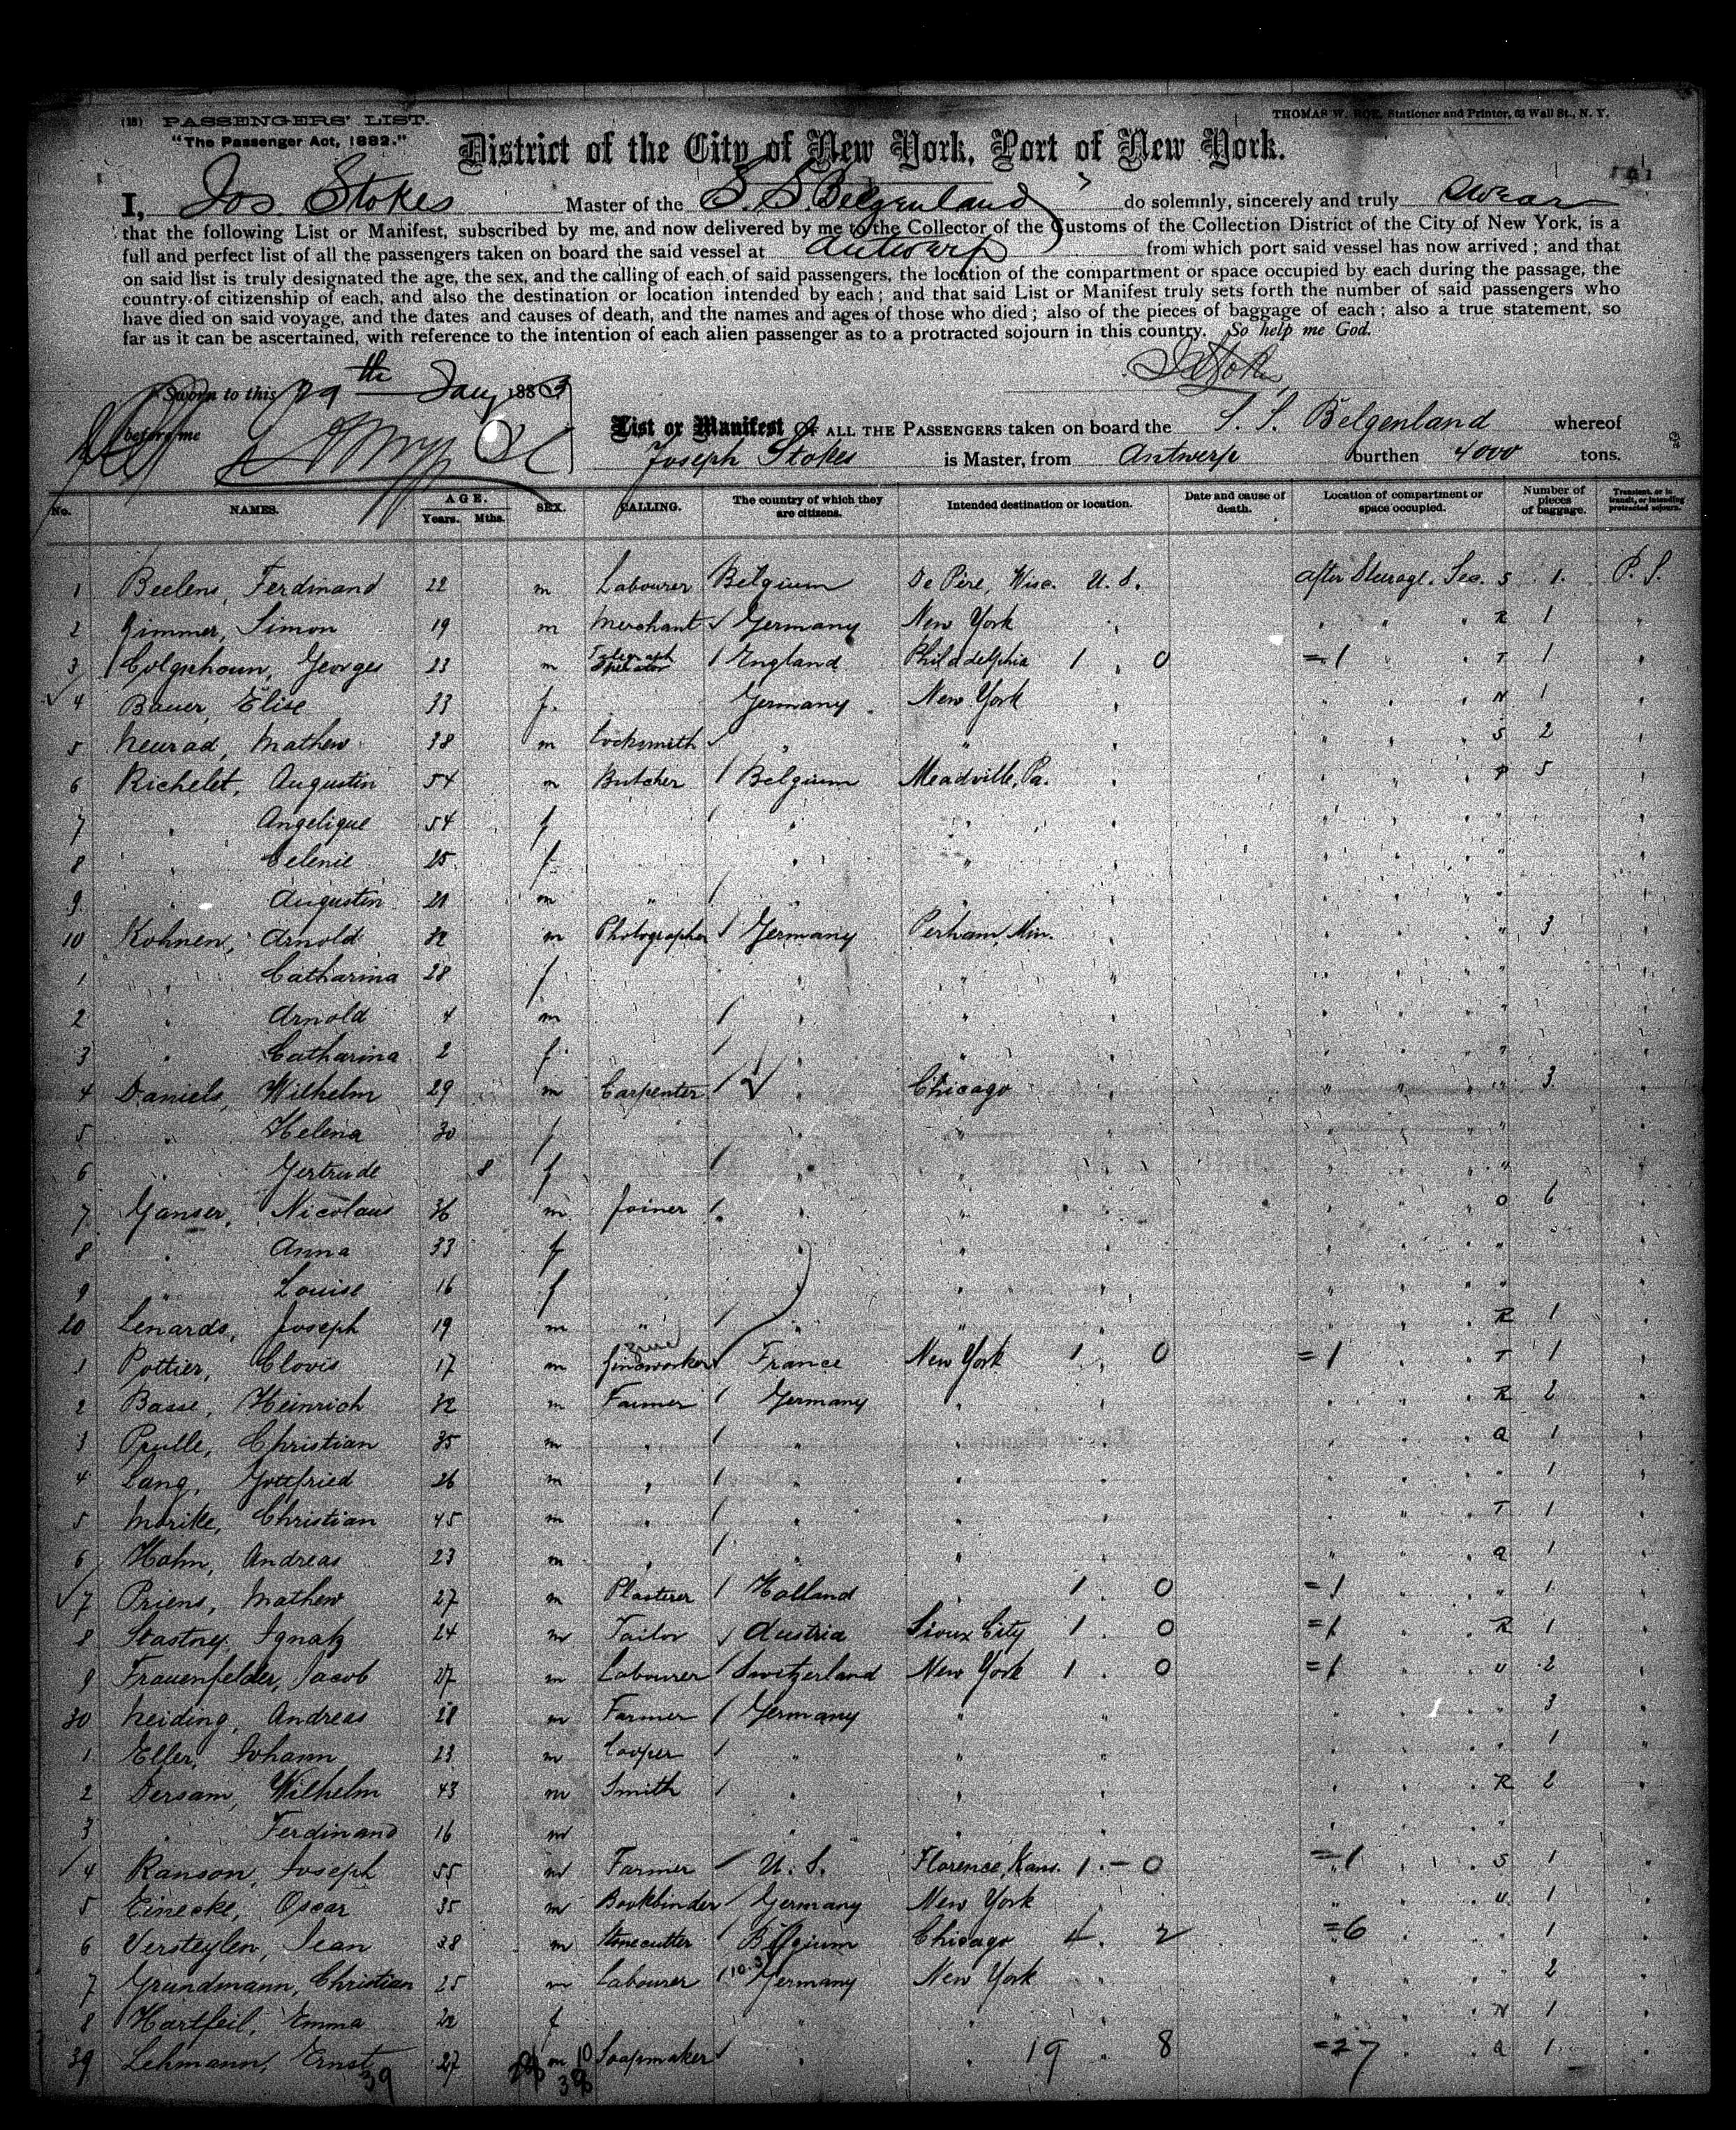 (18) PASSENGERS' LIST.
THOMAS W. ROE, Stationer and Printer, 63 Wall St., N. Y.
"The Passenger Act, 1882."
District of the City of New York, Port of New York.
I, Jos. Stokes Master of the S. S. Belgenland do solemnly, sincerely and truly swear
that the following List or Manifest, subscribed by me, and now delivered by me to the Collector of the Customs of the Collection District of the City of New York, is a
full and perfect list of all the passengers taken on board the said vessel at Antwerp from which port said vessel has now arrived; and that
on said list is truly designated the age, the sex, and the calling of each of said passengers, the location of the compartment or space occupied by each during the passage, the
country of citizenship of each, and also the destination or location intended by each; and that said List or Manifest truly sets forth the number of said passengers who
have died on said voyage, and the dates and causes of death, and the names and ages of those who died; also of the pieces of baggage of each; also a true statement, so
far as it can be ascertained, with reference to the intention of each alien passenger as to a protracted sojourn in this country. So help me God.
Sworn to this 29th Jany 1883
before me
List or Manifest OF ALL THE PASSENGERS taken on board the S. S. Belgenland whereof
Joseph Stokes is Master, from Antwerp burthen 4000 tons.
No. NAMES. AGE. Years. Mths. SEX. CALLING. The country of which they are citizens. Intended destination or location. Date and cause of death. Location of compartment or space occupied. Number of pieces of baggage. Transient, or in transit, or intending protracted sojourn.
1 Beelens, Ferdinand 22 m Labourer Belgium De Pere, Wisc. U. S. After Steerage. Sec. S 1. P. S.
2 Zimmer, Simon 19 m Merchant Germany New York " " R 1 "
3 Colquhoun, Georges 23 m Telegraph Operator England Philadelphia 1 0 =1 " T 1 "
4 Bauer, Elise 33 f. Germany New York " " N 1 "
5 Neurad, Mathew 38 m Locksmith " " " S 2 "
6 Richelet, Augustin 54 m Butcher Belgium Meadville, Pa. " " P 5 "
7 " Angelique 54 f " " " "
8 " Celenie 25 f " " " "
9 " Augustin 21 m " " " " "
10 Kohnen, Arnold 32 m Photographer Germany Perham, Min. " " " 3 "
1 " Catharina 28 f " " " "
2 " Arnold 4 m " " " "
3 " Catharina 2 f " " " "
4 Daniels, Wilhelm 29 m Carpenter " Chicago " " " 3 "
5 " Helena 30 f " " " "
6 " Gertrude 8 f " " " "
7 Ganser, Nicolaus 36 m Joiner " " " " O 6 "
8 " Anna 33 f " " " "
9 " Louise 16 f " " " "
20 Lenards, Joseph 19 m " " " " R 1 "
1 Pottier, Clovis 17 m Zincworker France New York 1 0 =1 " T 1 "
2 Basse, Heinrich 32 m Farmer Germany " " " R 2 "
3 Prulle, Christian 35 m " " " " Q 1 "
4 Lang, Gottfried 26 m " " " " " 1 "
5 Morike, Christian 45 m " " " " T 1 "
6 Hahn, Andreas 23 m " " " " Q 1 "
7 Priens, Mathew 27 m Plasterer Holland " 1 0 =1 " " 1 "
8 Stastney, Ignatz 24 m Tailor Austria Sioux City 1 0 =1 " R 1 "
9 Frauenfelder, Jacob 27 m Labourer Switzerland New York 1 0 =1 " U 2 "
30 Neiding, Andreas 28 m Farmer Germany " " " " 3 "
1 Eller, Johann 23 m Cooper " " " " " 1 "
2 Dersam, Wilhelm 43 m Smith " " " " R 2 "
3 " Ferdinand 16 m " " " " "
4 Ranson, Joseph 55 m Farmer U. S. Florence, Kans. 1 - 0 =1 " S 1 "
5 Einecke, Oscar 35 m Bookbinder Germany New York " " U 1 "
6 Versteylen, Jean 38 m Stonecutter Belgium Chicago 4 2 =6 " " 1 "
7 Grundmann, Christian 25 m Labourer 10.3 Germany New York " " " 2 "
8 Hartfeil, Emma 22 f " " " " N 1 "
39 Lehmann, Ernst 27 m 10 Soapmaker " " 19 8 =27 Q 1 "
39 38